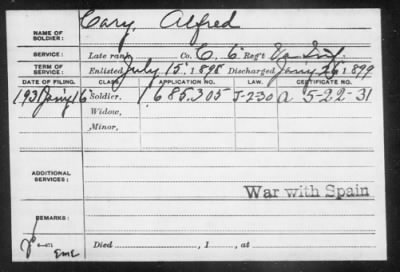 Cary, Alfred
NAME OF SOLDIER:
SERVICE: Late rank, Co. C, 6 Reg't Va Inf
TERM OF SERVICE: Enlisted July 15, 1898 Discharged Jan'y 26, 1899
DATE OF FILING. CLASS. APPLICATION NO. LAW. CERTIFICATE NO.
1931 Jan'y 16 Soldier. 1685,305 J-2-30 a 5-22-31
Widow,
Minor,
ADDITIONAL SERVICES:
War with Spain
REMARKS:
EME
Died , 1 , at